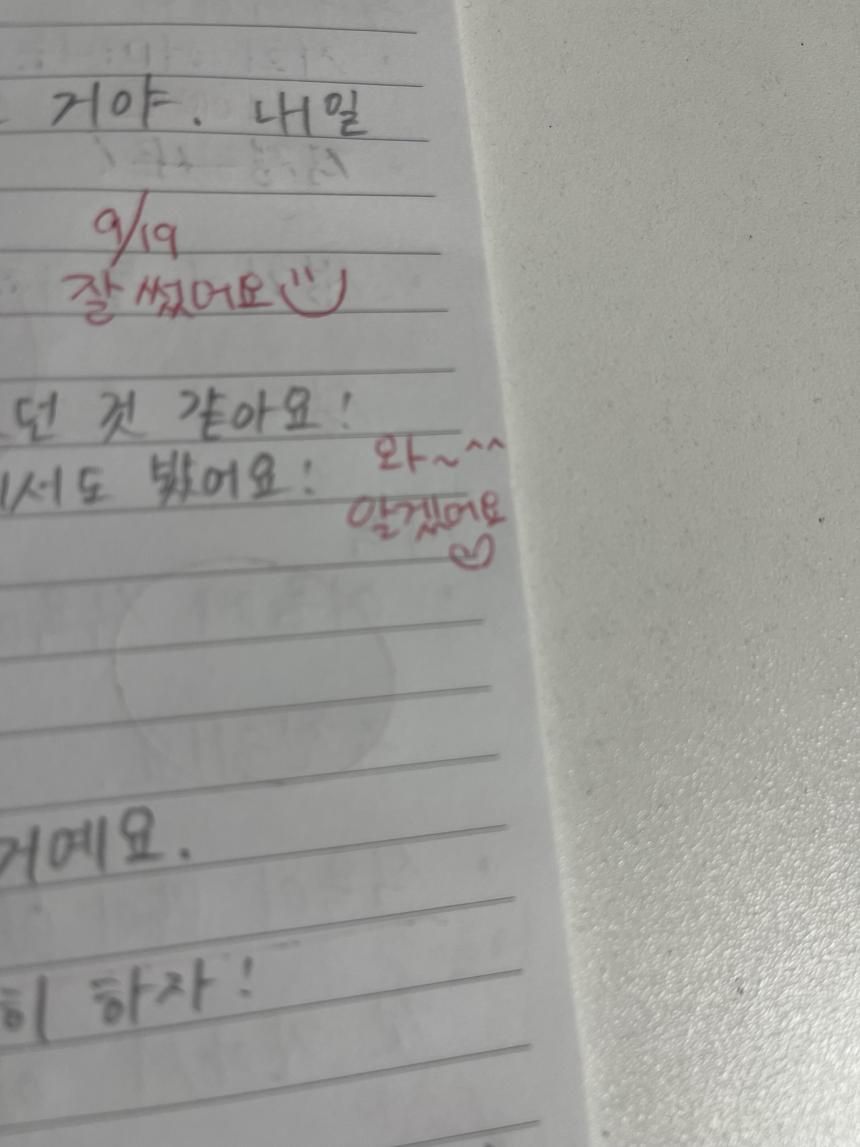 거야. 내일
9/19
잘 썼어요
던 것 같아요!
서도 봤어요! 와~^^
알겠어요♡
거예요.
히 하자!